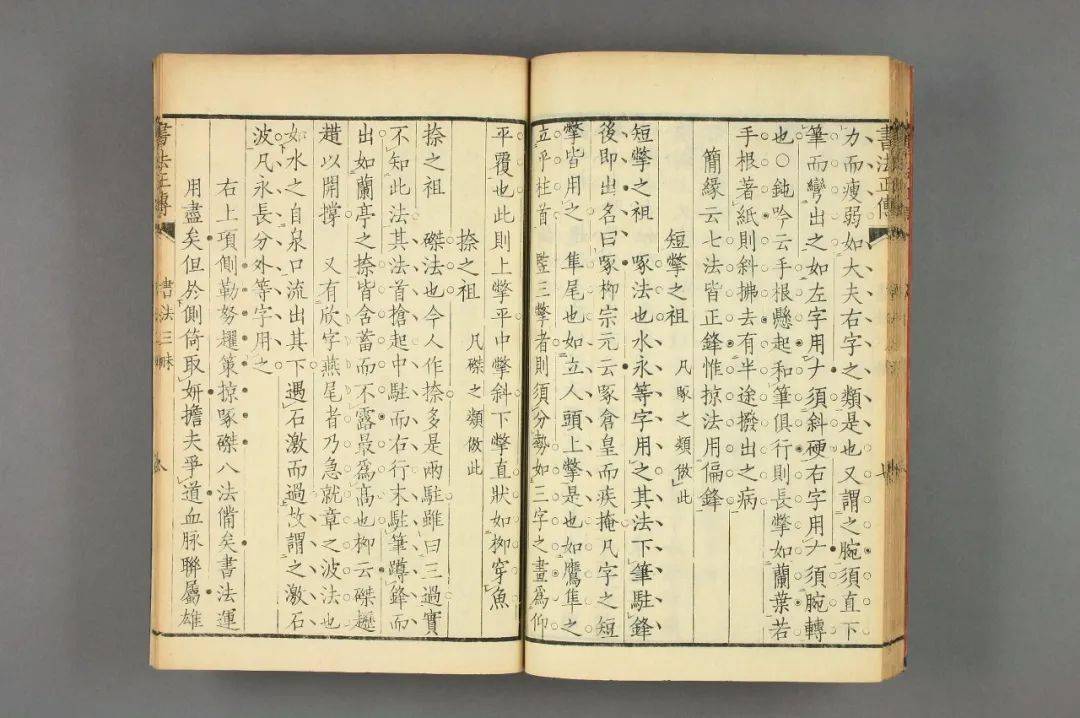 書法正傳
力而瘦弱如大夫右字之類是也又謂之腕須直下
筆而彎出之如左字用𠂇須斜硬右字用𠂇須腕轉
也○鈍吟云手根懸起和筆俱行則長撆如蘭葉若
手根著紙則斜拂去有半途撥出之病
簡緣云七法皆正鋒惟掠法用偏鋒
短撆之祖 凡啄之類倣此
短撆之祖 啄法也水永等字用之其法下筆駐鋒
後即出名曰啄栁宗元云啄倉皇而疾掩凡字之短
撆皆用之 隼尾也如立人頭上撆是也如鷹隼之
立乎柱首 監三撆者則須分勢如三字之畫為仰
平覆也此則上撆平中撆斜下撆直狀如栁穿魚
捺之祖 凡磔之類倣此
捺之祖 磔法也今人作捺多是兩駐雖曰三過實
不知此法其法首搶起中駐而右行末駐筆蹲鋒而
出如蘭亭之捺皆含蓄而不露最為高也栁云磔𧽼
趞以開撐 又有欣字燕尾者乃急就章之波法也
如水之自泉口流出其下遇石激而過故謂之激石
波凡永長分外等字用之
右上項側勒努趯策掠啄磔八法備矣書法運
用盡矣但於側倚取妍擔夫爭道血脉聯屬雄
書法正傳
書法三昧